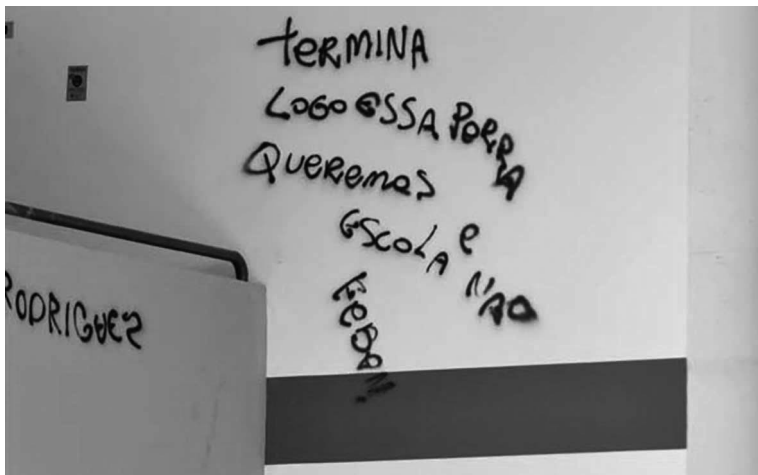 TERMINA
LOGO ESSA PORRA
QUEREMOS
ESCOLA e
NÃO
FEBEM!!
RODRIGUES